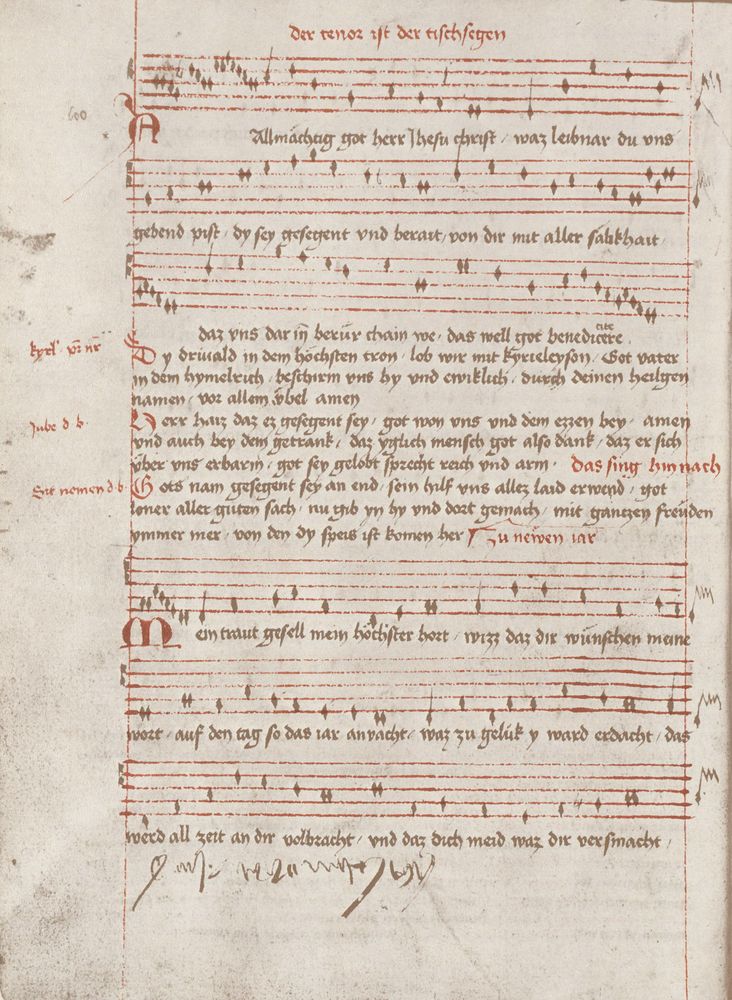 der tenor ist der tischsegen
Allmächtig got herr Jhesu christ / waz leibnar du vns
gebend pist / dy sey gesegent vnd berait / von dir mit aller sälikhait /
daz vns dar in berür chain we / das well got benedicere / cite
Dy driuald in dem höchsten tron / lob wir mit kyrieleyson / Got vater
in dem hymelrich / beschirm vns hy vnd ewiklich / durch deinen heilgen
namen / vor allem vbel amen
Jube d b
Herr haiz daz ez gesegent sey / got won vns vnd dem ezzen bey / amen
vnd auch bey dem getrank / daz yglich mensch got also dank / daz er sich
vber vns erbarm / got sey gelobt sprecht reich vnd arm / Das sing hin nach
Sit nomen d b
Gots nam gesegent sey an end / sein hilf vns allez laid erwend / got
loner aller guten sach / nu gib yn hy vnd dort gemach / mit gantzen freuden
ymmer mer / von den dy speis ist komen her / zu newen iar
Mein traut gesell mein höchster hort / wizz daz dir wünschen meine
wort / auf den tag so das iar anvacht / waz zu gelük y ward erdacht / das
werd all zeit an dir volbracht / vnd daz dich meid waz dir versmacht /